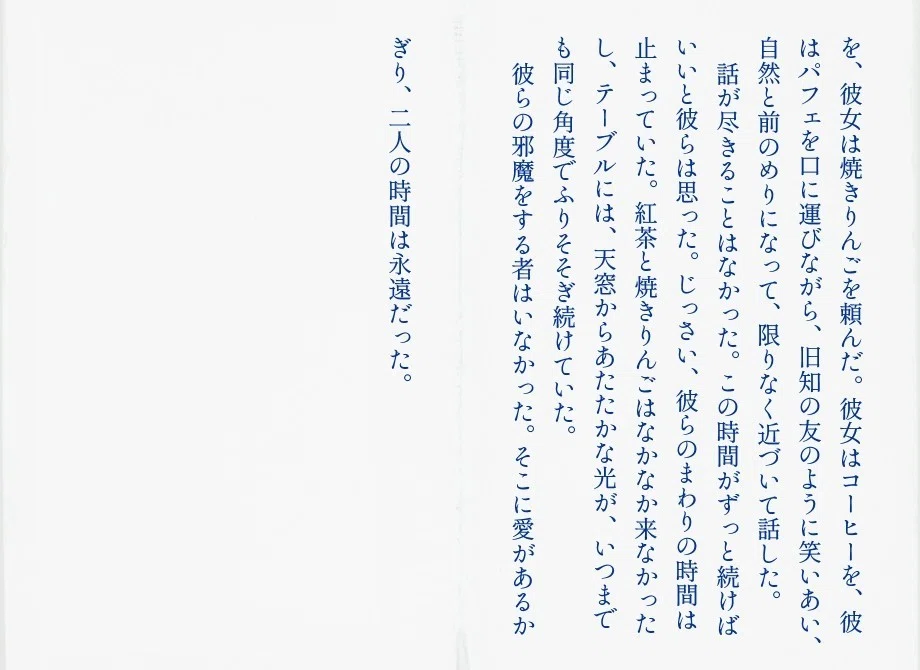 を、彼女は焼きりんごを頼んだ。彼女はコーヒーを、彼
はパフェを口に運びながら、旧知の友のように笑いあい、
自然と前のめりになって、限りなく近づいて話した。
　話が尽きることはなかった。この時間がずっと続けば
いいと彼らは思った。じっさい、彼らのまわりの時間は
止まっていた。紅茶と焼きりんごはなかなか来なかった
し、テーブルには、天窓からあたたかな光が、いつまで
も同じ角度でふりそそぎ続けていた。
　彼らの邪魔をする者はいなかった。そこに愛があるか
ぎり、二人の時間は永遠だった。